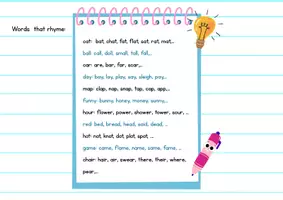 Words that rhyme:
cat: bat, chat, fat, flat, sat, rat, mat,..
ball: call, doll, small, tall, fall,..
car: are, bar, for, scar,..
day: bay, lay, play, say, sleigh, pay,..
map: clap, nap, snap, tap, cap, app,..
funny: bunny, honey, money, sunny,..
hour: flower, power, shower, tower, sour, ..
red: bed, bread, head, said, dead, ..
hot: not, knot, dot, plot, spot, ..
game: came, flame, name, same, fame, ..
chair: hair, air, swear, there, their, where,
pear,..